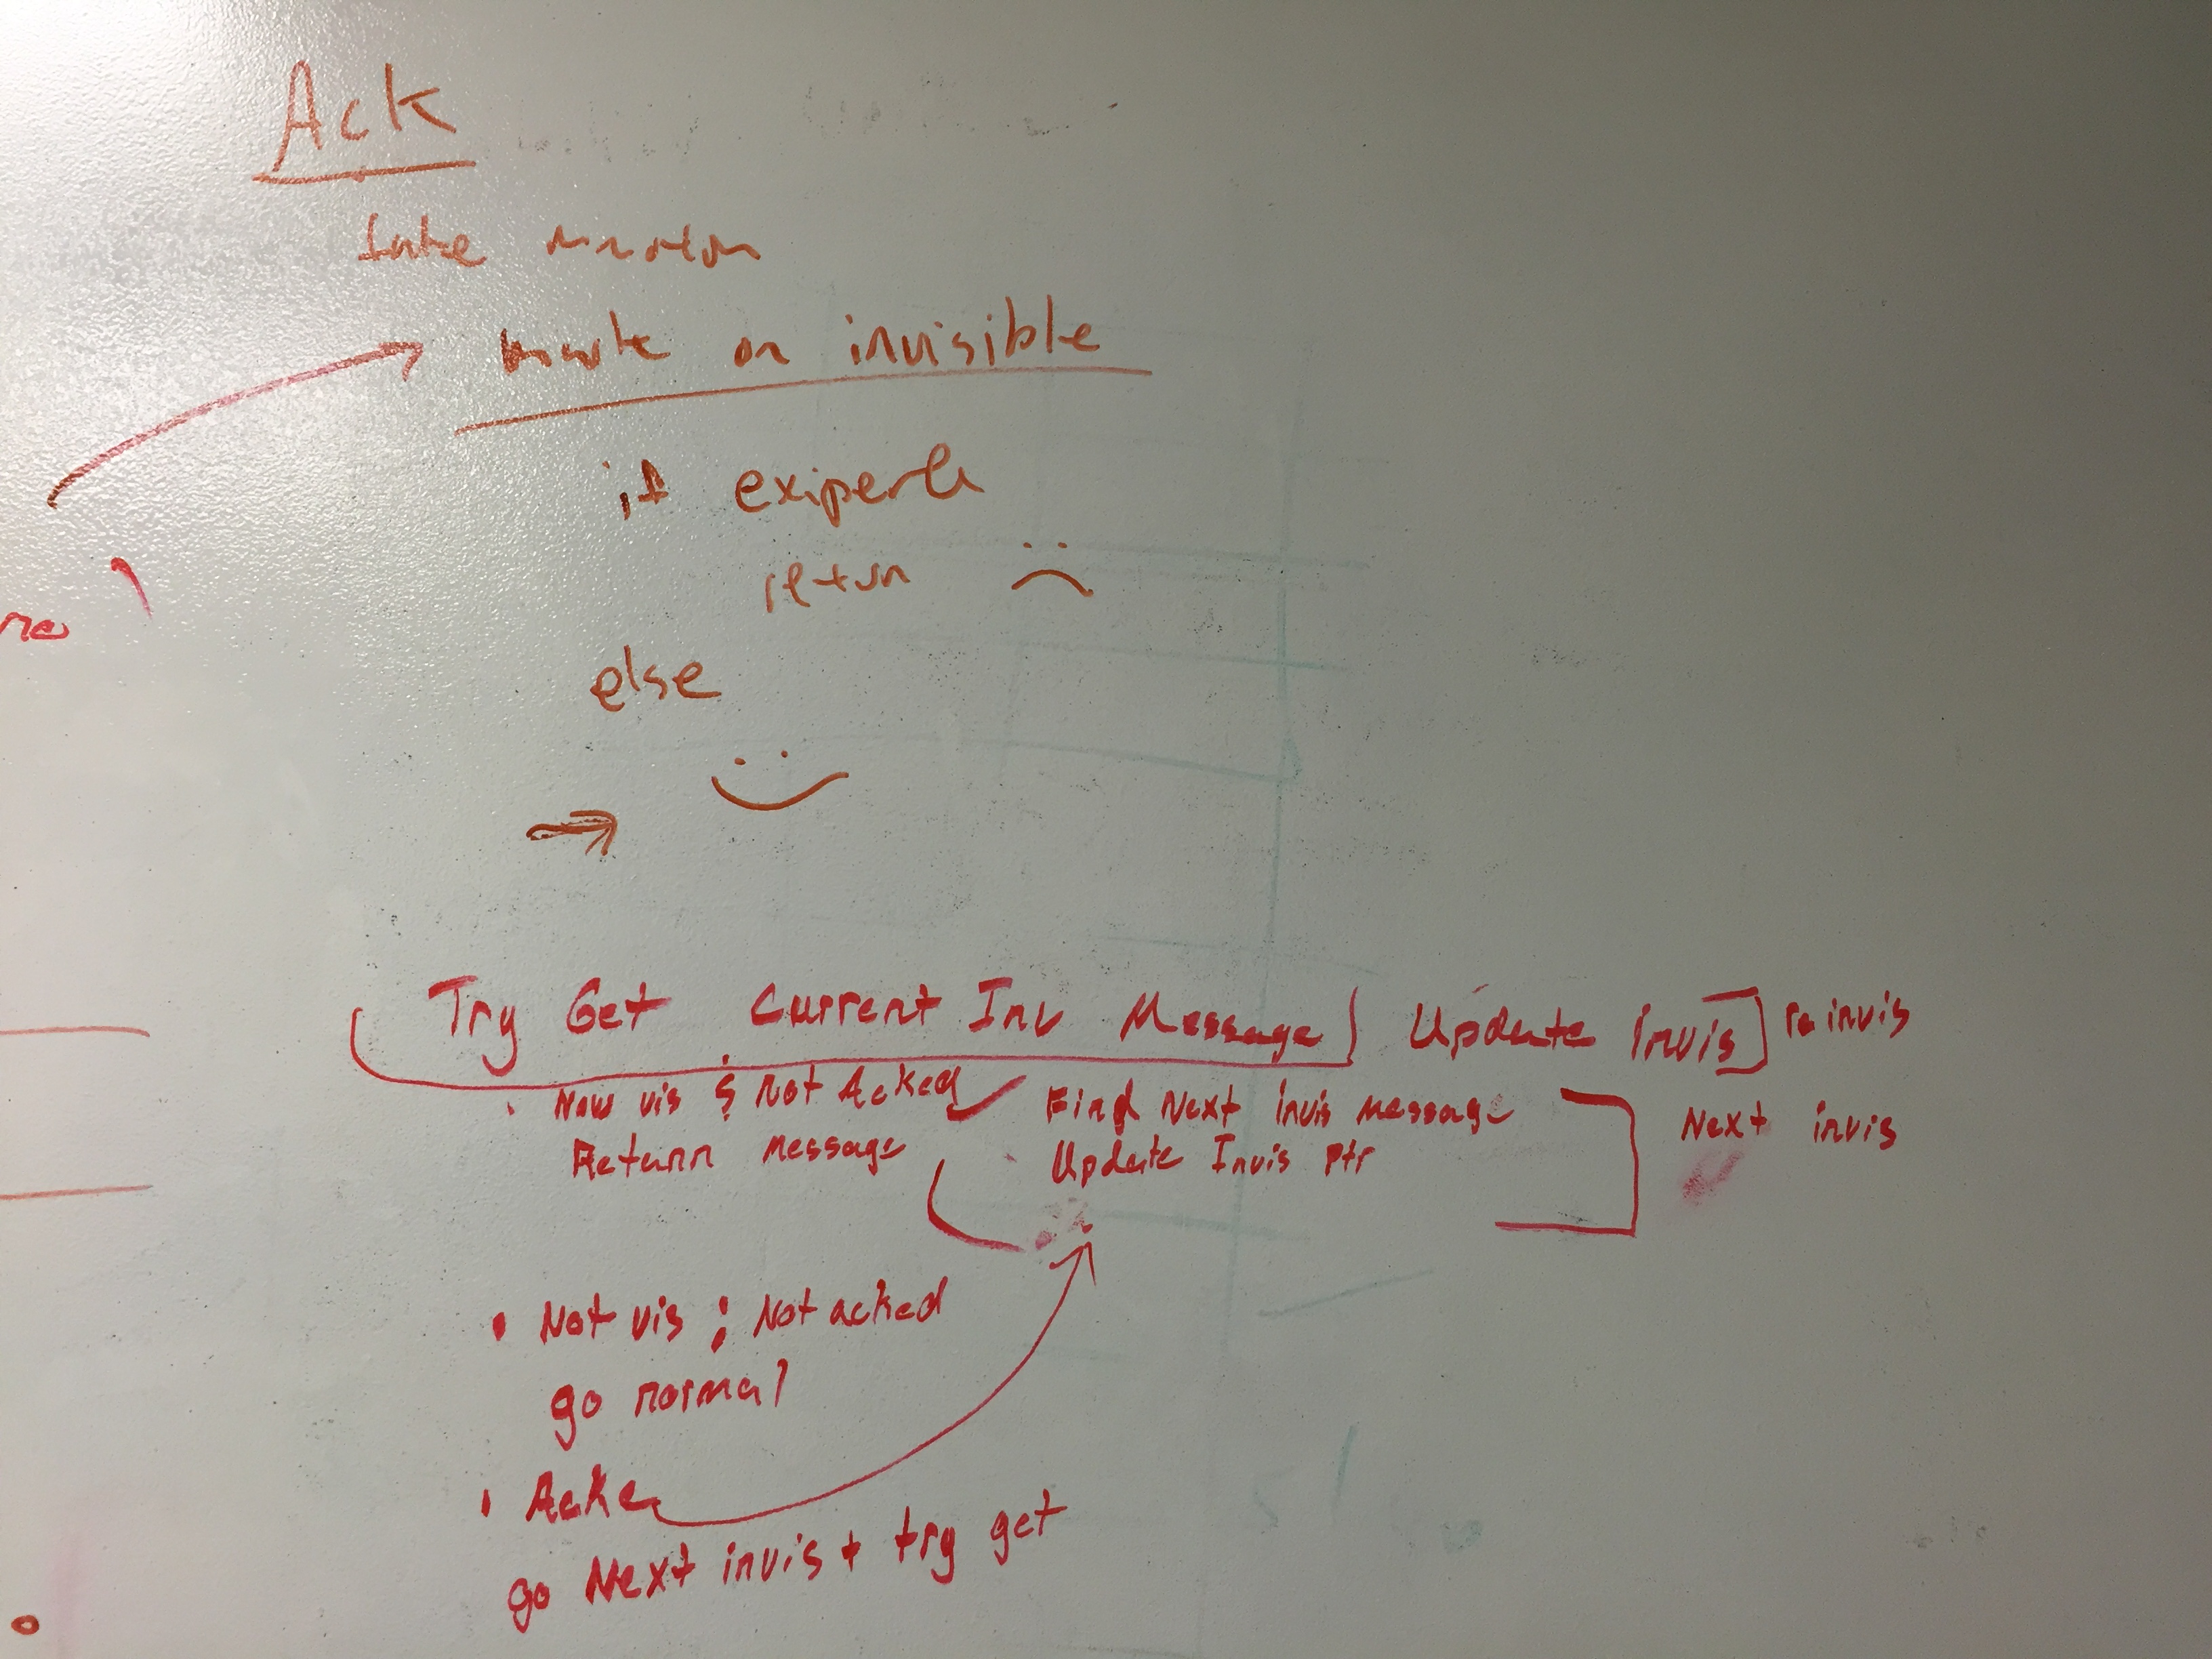 Ack
on invisible
if exipered
return
else
Try Get Current Inv Message Update invis
Now vis & Not Acked
Return Message
Find Next invis message
Update Invis Ptr
Next invis
Not vis ; Not acked
go normal
Acke
go Next invis + try get